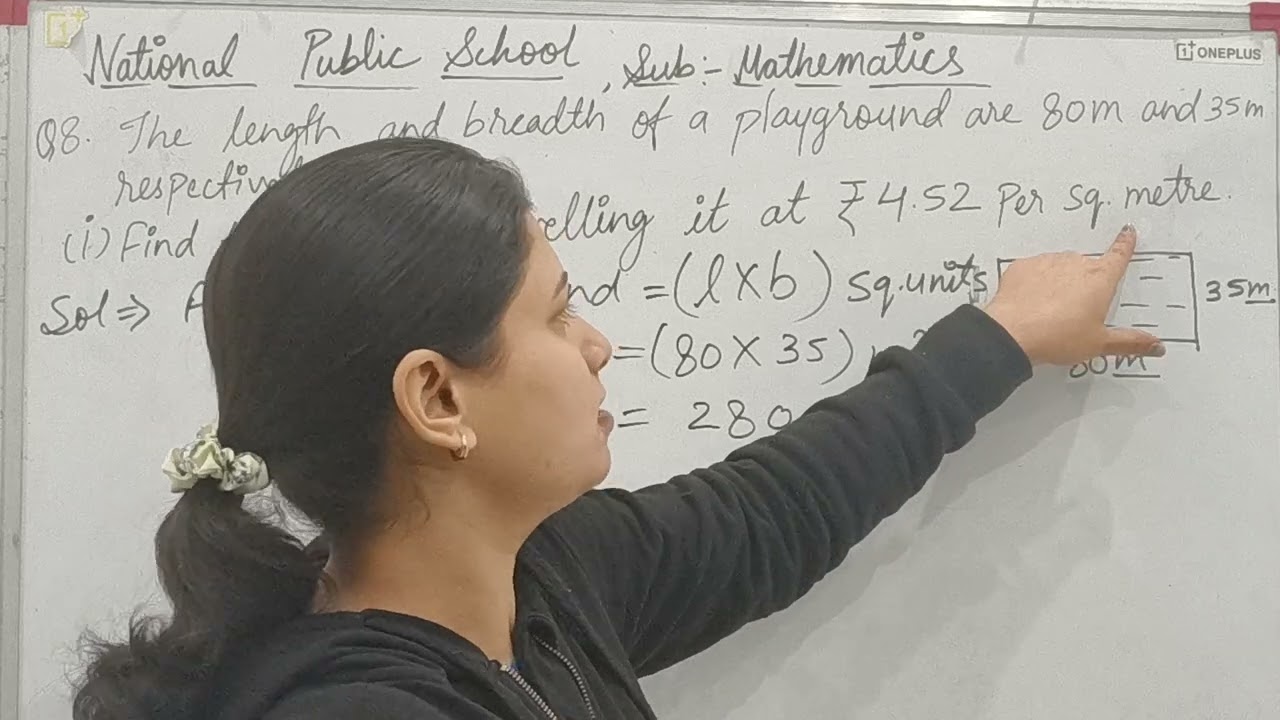 National Public School, Sub:- Mathematics
1+ ONEPLUS
Q8. The length and breadth of a playground are 80m and 35m
respectiv
(i) Find elling it at ₹4.52 Per sq. metre.
Sol ⇒ A nd = (l X b) sq.units
35m
= (80 X 35)
80m
= 280